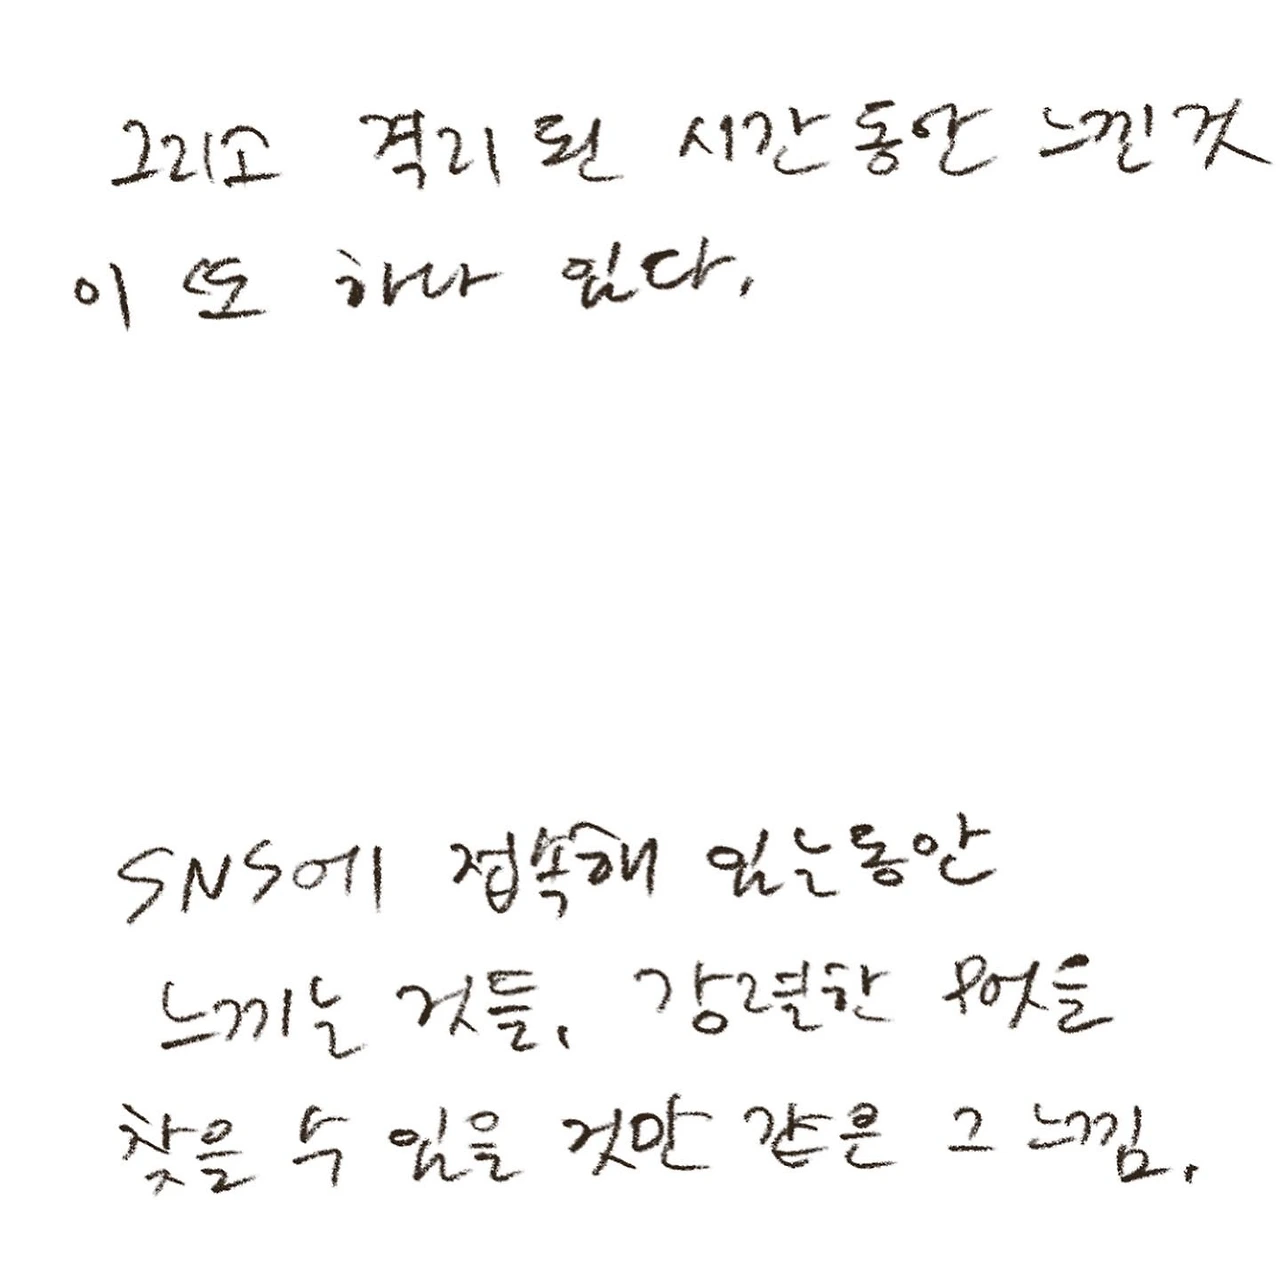 그리고 격리된 시간동안 느낀것
이 또 하나 있다.
SNS에 접속해 있는동안
느끼는 것들. 강렬한 무엇을
찾을 수 있을 것만 같은 그 느낌.